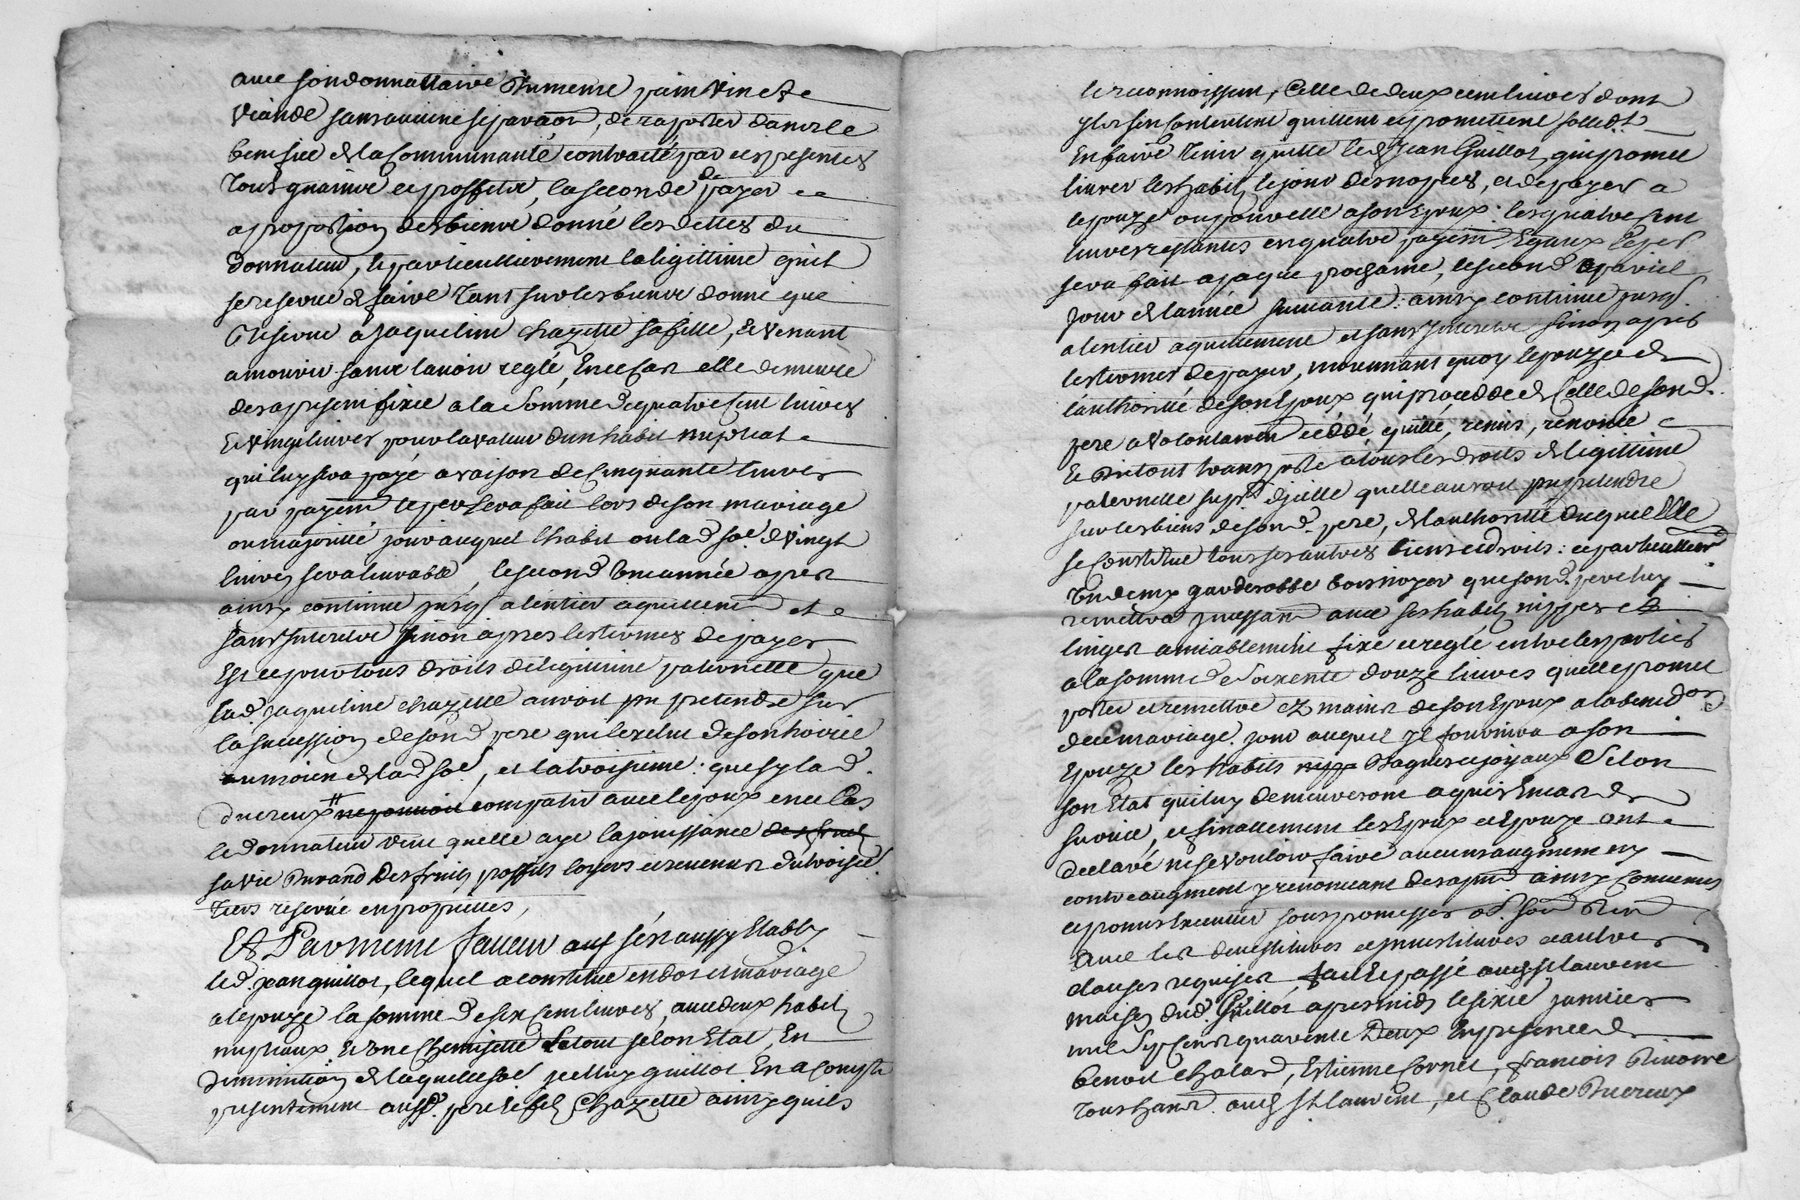 avec son donnattaire Du meme pain vin et
viande sans aucune separaon, de raporter dans le
benefice de la Communauté contracté par ces presentes
tous gains et proffits, la seconde de payer
a proportion des biens donné les dettes du
donnateur, et particullierement la legittime qu'il
se reserve de faire tant sur les biens donné que
reservé a Jaqueline chazette sa fille, et venant
a mourir sans l'avoir reglé, En ce Cas elle demeure
des a present fixée a la Somme de quatre Cent livres
Et vingt livres pour la valeur d'un habit nuptial
qui luy sera payé a raison de Cinquante livres
par payemt le per sera fait lors de son mariage
ou majorité jour auquel l'habit ou lad. soe de vingt
livres sera livrable, le second Une année apres
ainsy continué jusq. a l'entier aquittement et
sans Interets sinon apres les termes de payer
Et ce pour tous droits de legittime paternelle que
lad. Jaqueline chazette auroit pu pretendre sur
la succession de sond. pere qui l'exclut de son hoirie
au moien de lad. soe, et la troisieme: que sy lad.
ducreux ne pouvoit compatir avec l'epoux en ce Cas
le donnateur veut quelle aye la jouissance des fruits
sa vie Durand Des fruits proffits loyers et revenus du troise.
tiers reservé en proprietés,
Et Par meme faveur aussy s'est aussy Etably
led. jean guillot, lequel a constitué en dot et mariage
a l'epouze la somme de six Cent livres, avec deux habits
nuptiaux Et Une Chemisette Le tout selon Etat, En
Diminution de laquelle soe iceluy guillot En a Compté
presentement ausd. pere et fils Chazette ainsy quils
le reconnoissent, Celle de deux cent livres dont
ylz s'en Contentent quittent et promettent sollidt.
En faire tenir quitte led. Jean Guillot, qui promet
livrer les habits le jour des nopces, et de payer a
l'epouze ou pour elle a son Epoux: les quatre Cent
livres restantes en quatre payemt Egaux le per
sera fait a paque prochaine, le second a pareil
jour de l'année suivante: ainsy continué jusq.
a l'entier aquittement et sans Interets sinon apres
les termes de payer, moiennant quoy l'epouze de
l'authorité de son Epoux qui procedde de Celle de sond.
pere a volontairemt cédé, quitté, remis, renoncé
Et du tout transporté a tous les droits de legittime
paternelle supt. d'icelle quelle auroit pu pretendre
sur les biens de sond. pere, de l'authorité duquel Elle
se Constitue tous ses autres biens et droits: et particullieremt
Un deux garderobbe bois noyer que sond. pere luy
remettra puissant avec ses habits nippes et
linges amiablement fixé et reglé entre les parties
a la somme de Soixente douze livres quelle promet
porter et remettre ez mains de son Epoux a la benedon.
de ce mariage. jour auquel Il fournira a son
Epouze les habits Bagues et joyaux Selon
son Etat qui luy demeureront aquis En cas de
survie, et finallement les Epoux et Epouze ont
declaré ne se vouloir faire aucuns augment ny
contreaugment y renonceant des a pnt ainsy Convenus
et promis Executer sous promesses obon. son dies
avec les devestitures et investitures et autres
clauses requises fait et passé aud. st laurent
maison dud. Guillot apres midy le six janvier
mil Sept Cent quarente Deux En presence de
benoit chatard, Estienne Cornet, francois Rivoire
tous hants. aud. St laurent, et Claude Ducreux